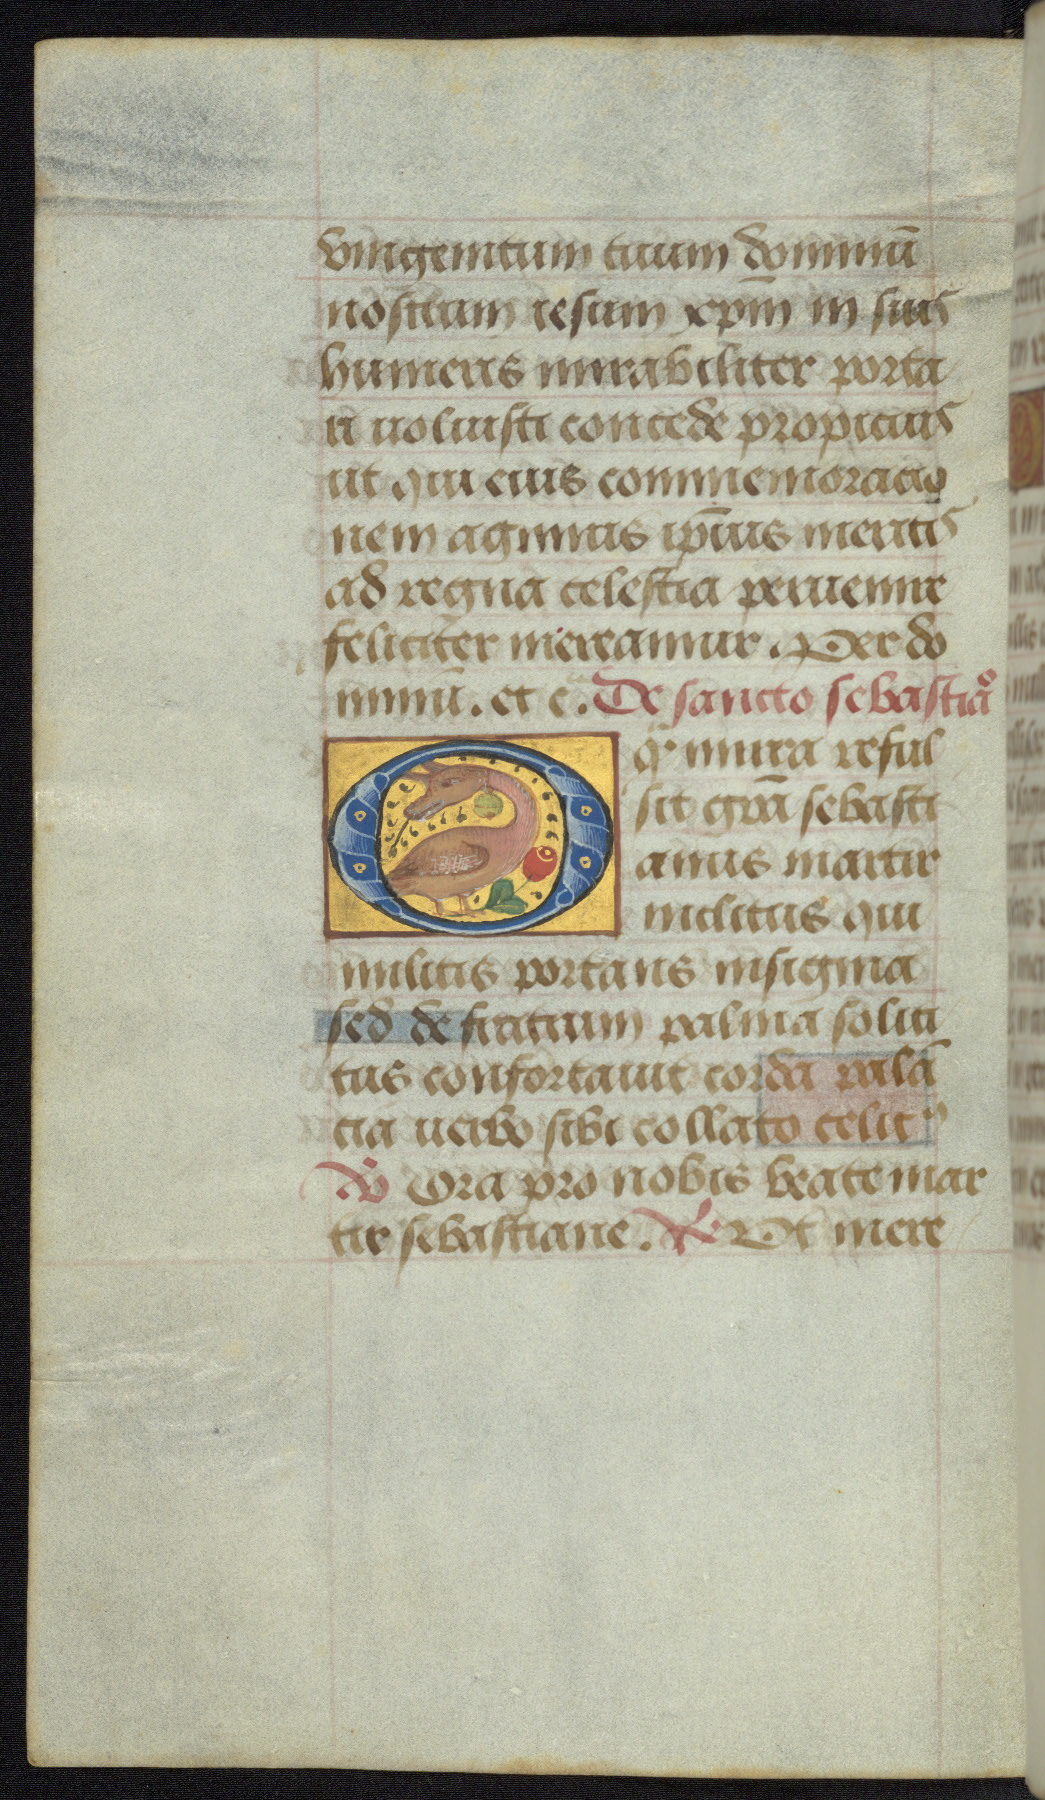 vnigenitum tuum dominū
nostrum iesum xp̄m in suis
humeris mirabiliter porta
ri uoluisti concede propicius
ut qui eius commemoracio
nem agimus ip̄ius meritis
ad regna celestia peruenire
feliciter mereamur. Per do
minū. et c̄. De sancto sebastiāo
O q̄ mira reful
sit grā sebasti
anus martir
inclitus qui
militis portans insignia
sed de fratrum palma solici
tus confortauit corda pala
cia uerbo sibi collato celit9
℣ Ora pro nobis beate mar
tir sebastiane. ℟ Ut mere